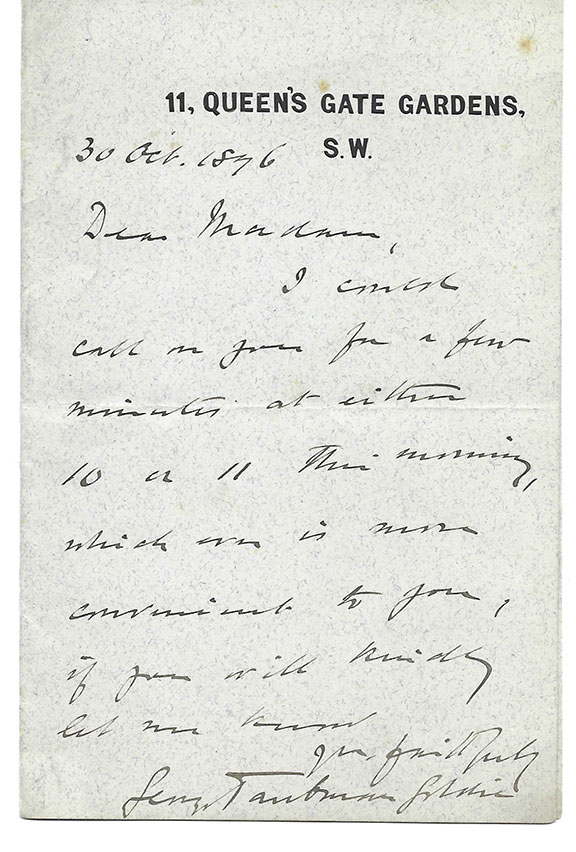 11, QUEEN'S GATE GARDENS,
S.W.
30 Oct. 1896
Dear Madam,
I could
call on you for a few
minutes at either
10 or 11 this morning,
which ever is more
convenient to you,
if you will kindly
let me know
yrs. faithfully
George Taubman Goldie